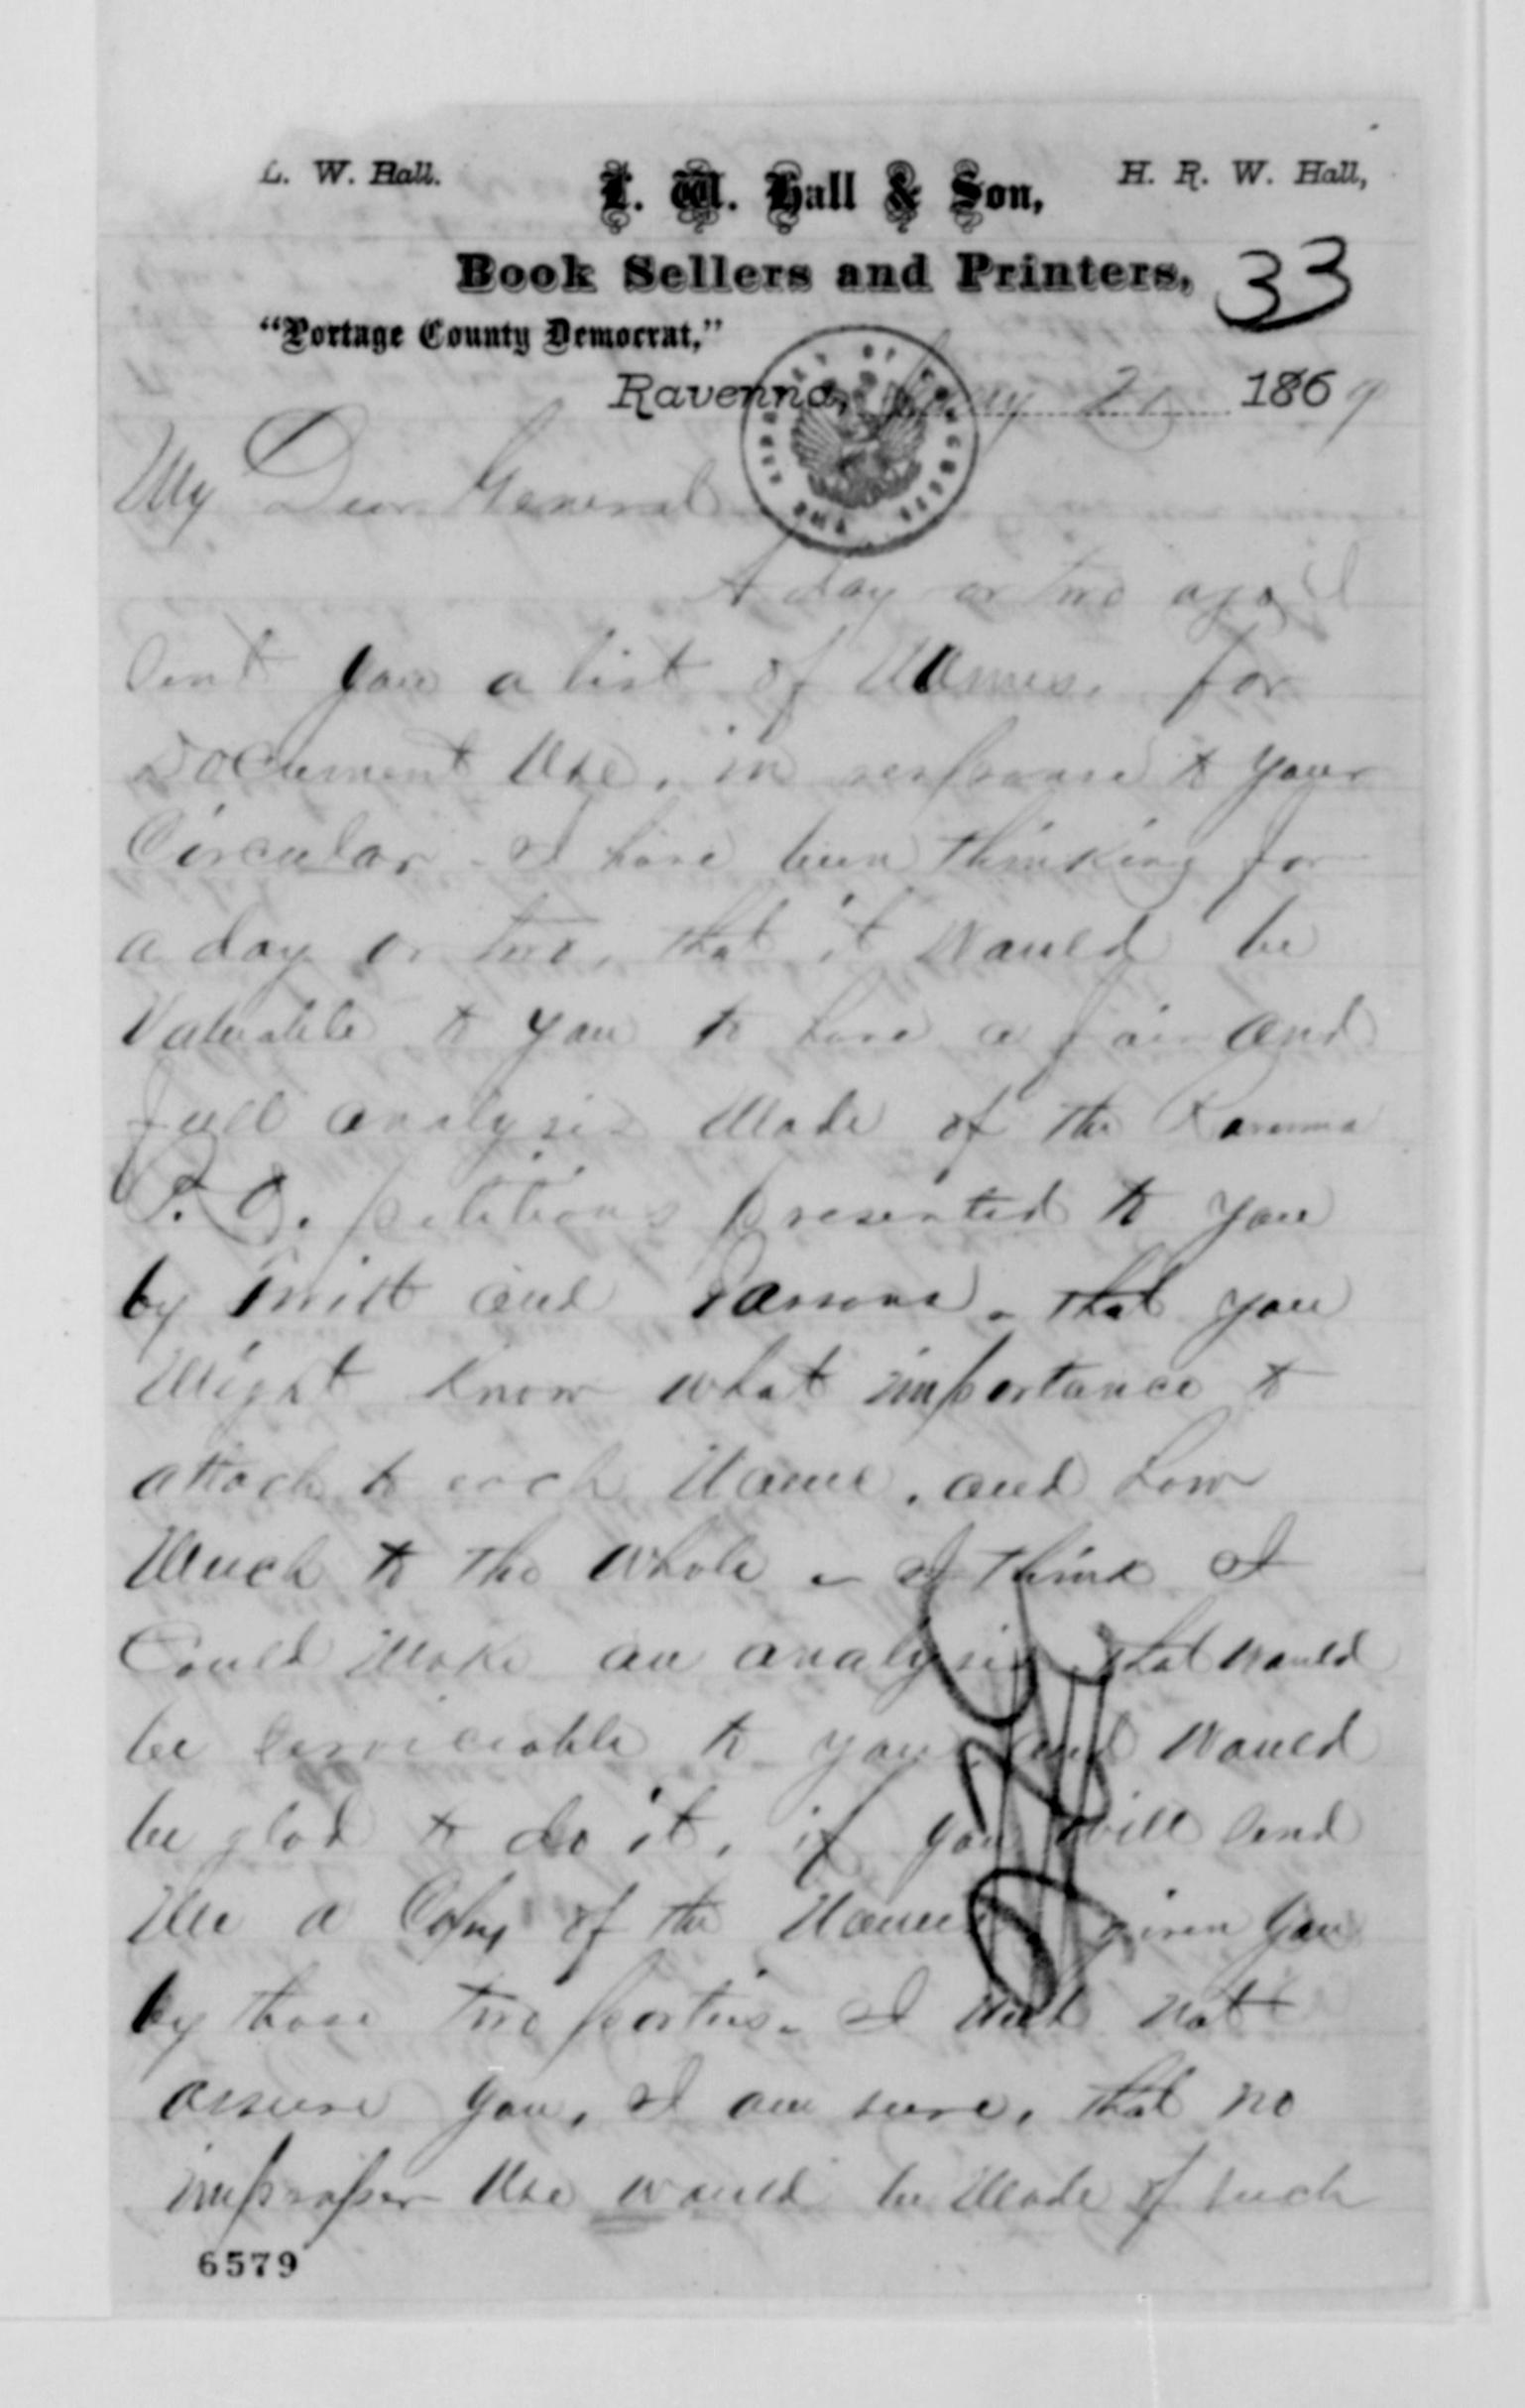 L. W. Hall.
L. W. Hall & Son,
H. R. W. Hall,
Book Sellers and Printers,
33
"Portage County Democrat,"
Ravenna, 20 1869
My Dear General
A day or two ago I
sent you a list of Names, for
Document Use, in response to your
Circular - I have been thinking for
a day or two, that it would be
Valuable to you to have a fair and
full analysis Made of the Ravenna
P. O. petitions presented to you
by and Parsons - that you
Might Know what importance to
attach to each Name, and how
Much to the whole - I think I
Could Make an analysis that would
be serviceable to you and would
be glad to do it, if you will send
Me a Copy of the Names given you
by those two parties - I need not
assure you, I am sure, that no
improper Use would be Made of such
6579